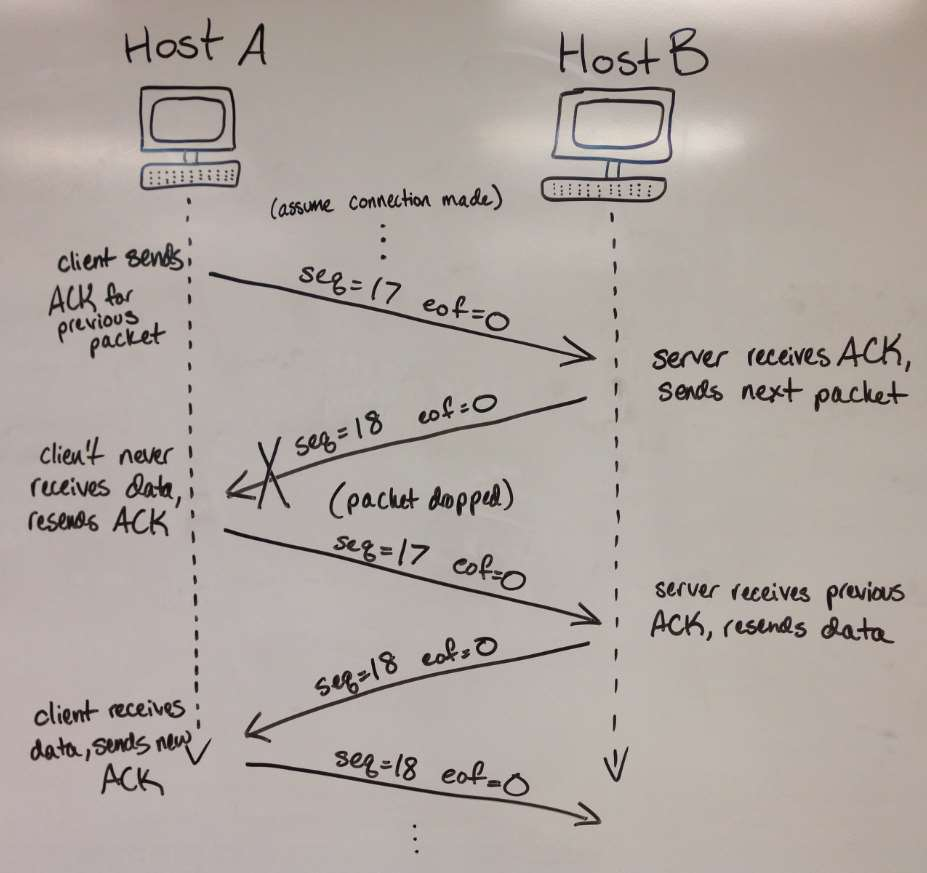 Host A
Host B
(assume connection made)
client sends
ACK for
previous
packet
seq=17 eof=0
server receives ACK,
sends next packet
seq=18 eof=0
client never
receives data,
resends ACK
(packet dropped)
seq=17 eof=0
server receives previous
ACK, resends data
seq=18 eof=0
client receives
data, sends new
ACK
seq=18 eof=0